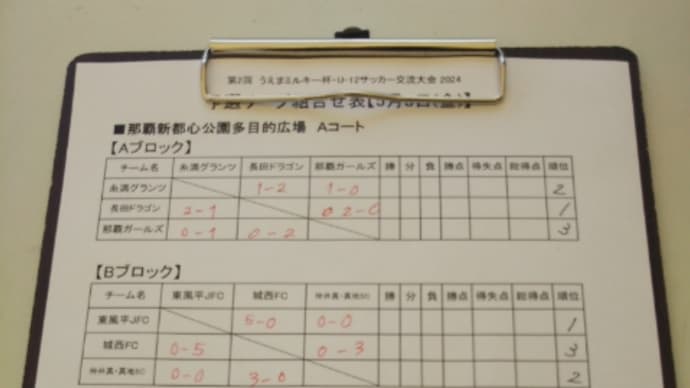 第2回 うえまミルキー杯・U-12サッカー交流大会 2024
組合せ表【5月3日(金)】
■那覇新都心公園多目的広場 Aコート
【Aブロック】
チーム名 糸満グランツ 長田ドラゴン 那覇ガールズ 勝 分 負 勝点 得失点 総得点 順位
糸満グランツ 1-2 1-0 2
長田ドラゴン 2-1 2-0 1
那覇ガールズ 0-1 0-2 3
【Bブロック】
チーム名 東風平JFC 城西FC 仲井真・真地SC 勝 分 負 勝点 得失点 総得点 順位
東風平JFC 5-0 0-0 1
城西FC 0-5 0-3 3
仲井真・真地SC 0-0 3-0 2